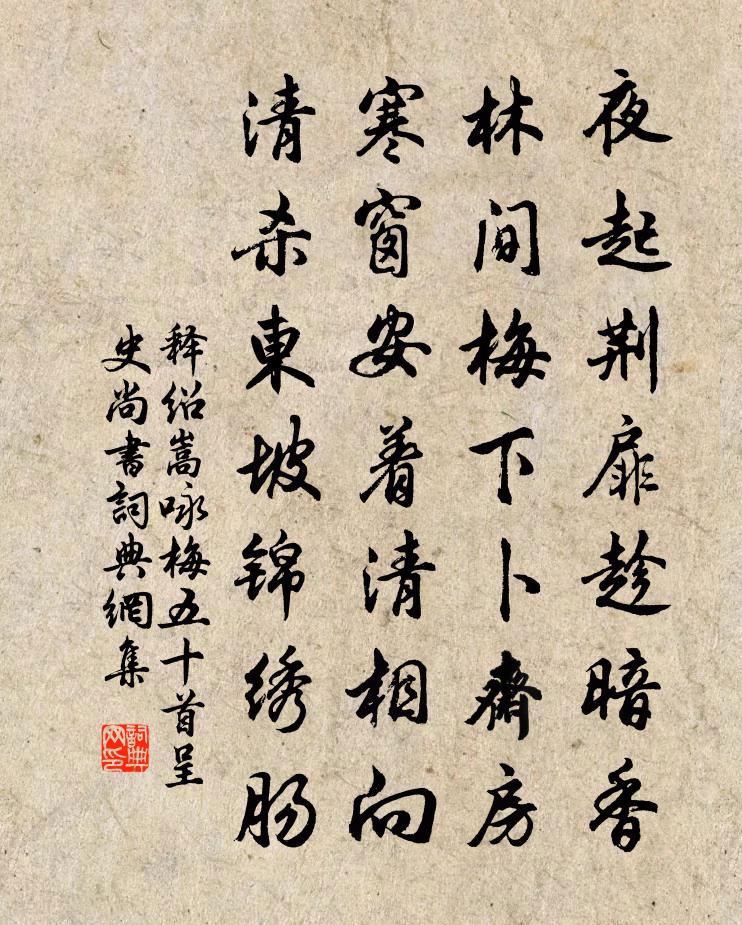 夜起荆扉趁暗香
林间梅下卜齋房
寒窗安着清相向
清杀東坡锦绣肠
释绍嵩咏梅五十首呈
史尚書詞典網集
詞典网印